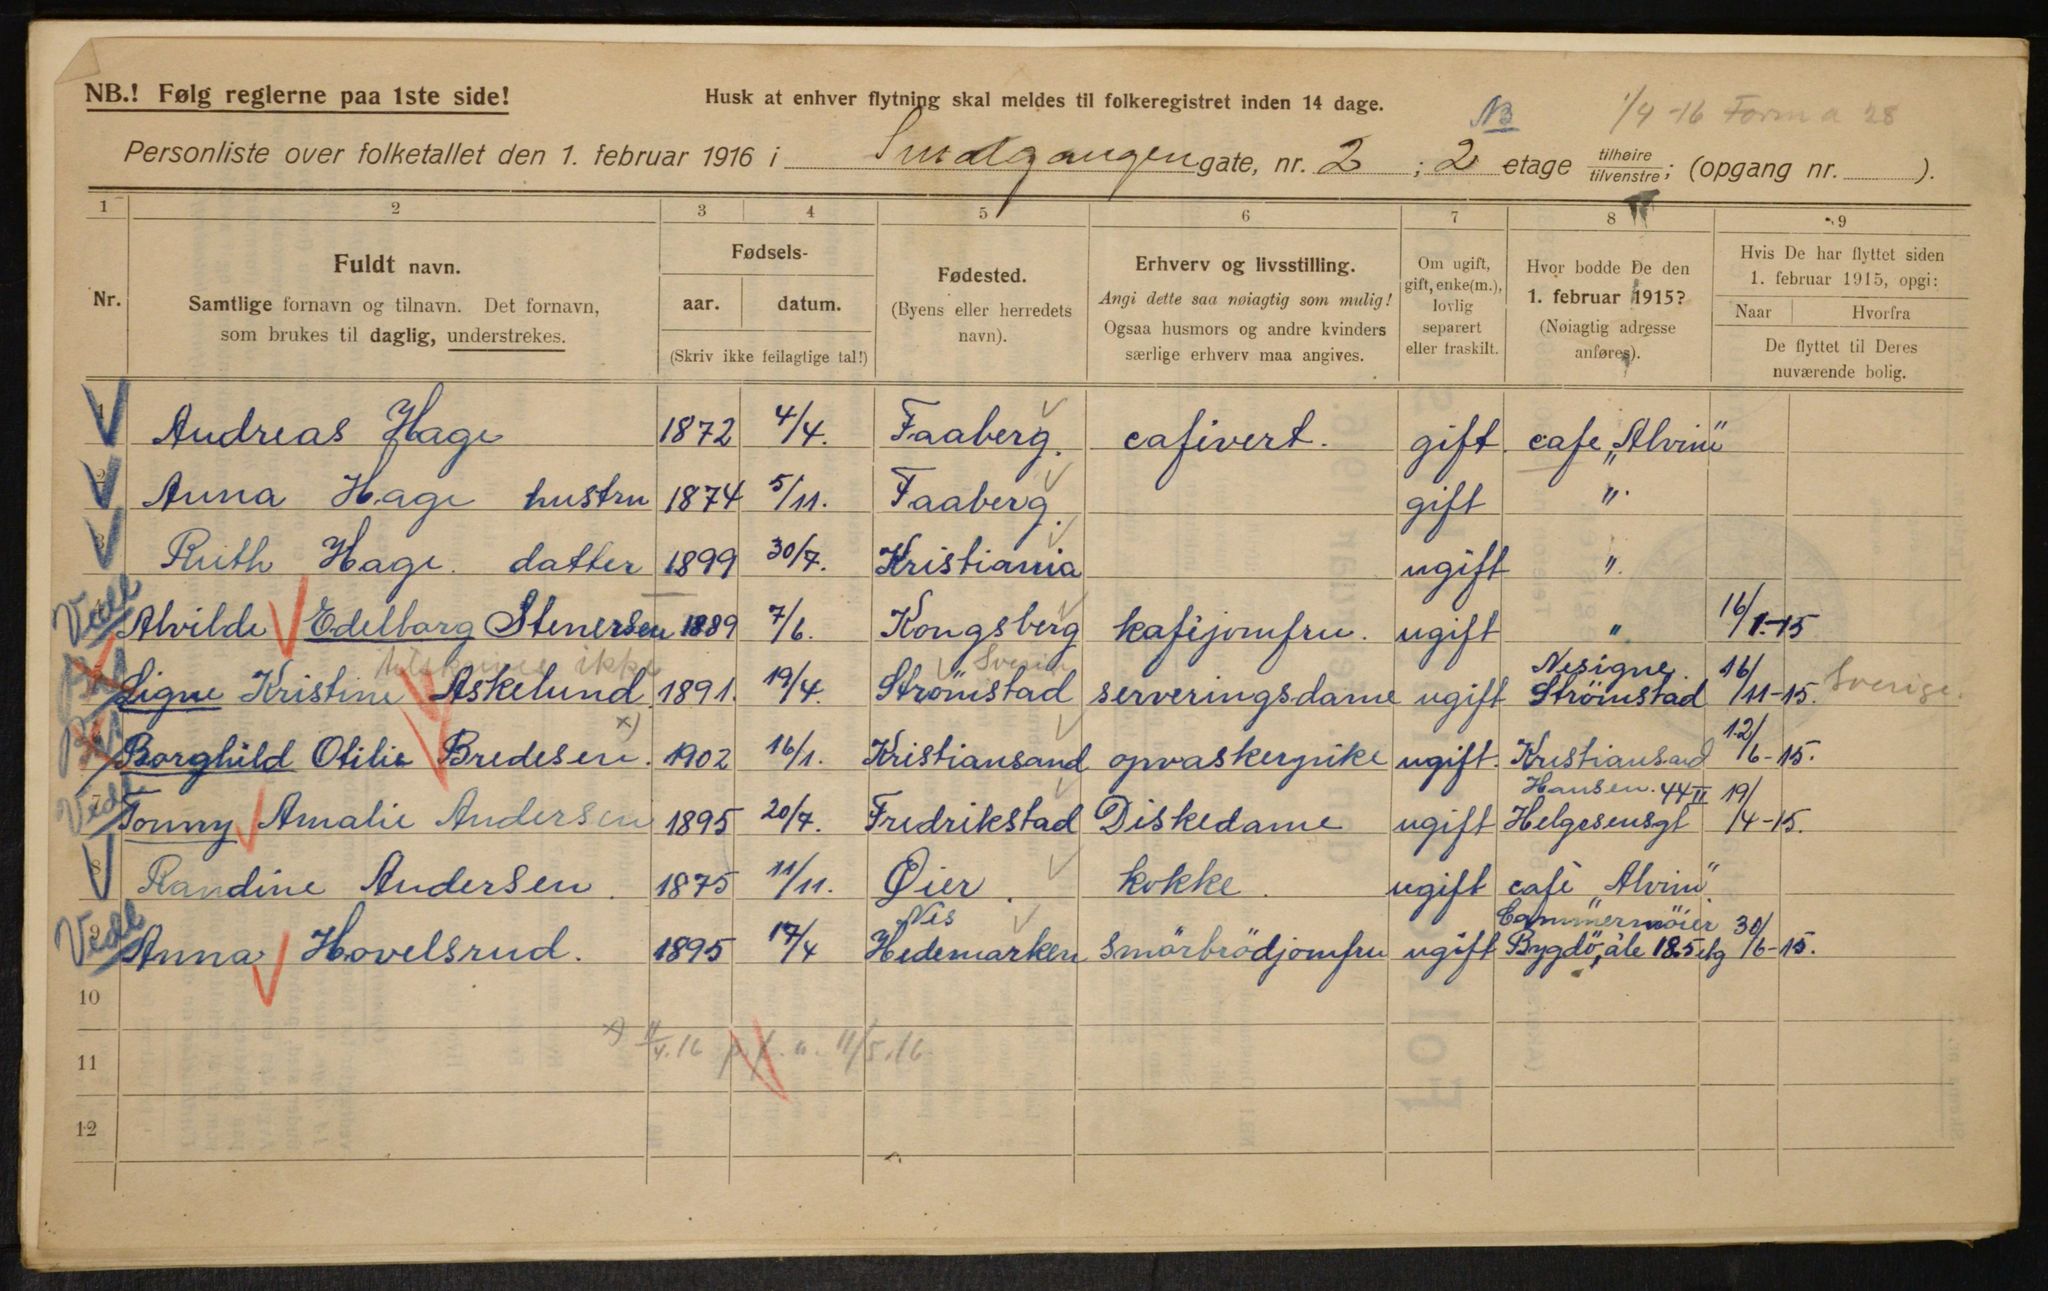 NB.! Følg reglerne paa 1ste side!
Husk at enhver flytning skal meldes til folkeregistret inden 14 dage.
NB
1/4 -16 Forma 28
Personliste over folketallet den 1. februar 1916 i Smalgangen gate, nr. 2 ; 2 etage tilhøire tilvenstre; (opgang nr. ).
1 2 3 4 5 6 7 8 9
Nr.
Fuldt navn.
Samtlige fornavn og tilnavn. Det fornavn,
som brukes til daglig, understrekes.
Fødsels-
aar. datum.
(Skriv ikke feilagtige tal!)
Fødested.
(Byens eller herredets
navn).
Erhverv og livsstilling.
Angi dette saa nøiagtig som mulig!
Ogsaa husmors og andre kvinders
særlige erhverv maa angives.
Om ugift,
gift, enke(m.),
lovlig
separert
eller fraskilt.
Hvor bodde De den
1. februar 1915?
(Nøiagtig adresse
anføres).
Hvis De har flyttet siden
1. februar 1915, opgi:
Naar Hvorfra
De flyttet til Deres
nuværende bolig.
1 Andreas Hage 1872 4/4. Faaberg. cafivert. gift. cafe „Alvim"
2 Anna Hage hustru 1874 5/11. Faaberg. gift "
3 Ruth Hage. datter 1899 30/7. Kristiania ugift "
Vedl Alvilde Edelborg Stenersen 1889 7/6. Kongsberg kafijomfru. ugift " 16/1.-15
ikke Sverige Nesigne
5 Signe Kristine Askelund 1891. 19/4. Strömstad serveringsdame ugift Strömstad 16/11-15. Sverige.
Borghild Otilie Bredesen x). 1902 16/1. Kristiansand opvaskerpike ugift. Kristiansand 12/6-15.
Hansen. 44 II
Vedl 7 Tonny Amalie Andersen 1895 20/7. Fredrikstad Diskedame ugift Helgesensgt 19/4-15.
8 Randine Andersen. 1875 11/11. Øier. kokke. ugift cafè „Alvim"
Nes Cammermöier
Vedl 9 Anna Hovelsrud. 1895 17/4 Hedemarken Smörbrödjomfru ugift Bygdö, ale 18.5 etg 30/6-15.
10
x) 11/4.16 11/5.16
11
12